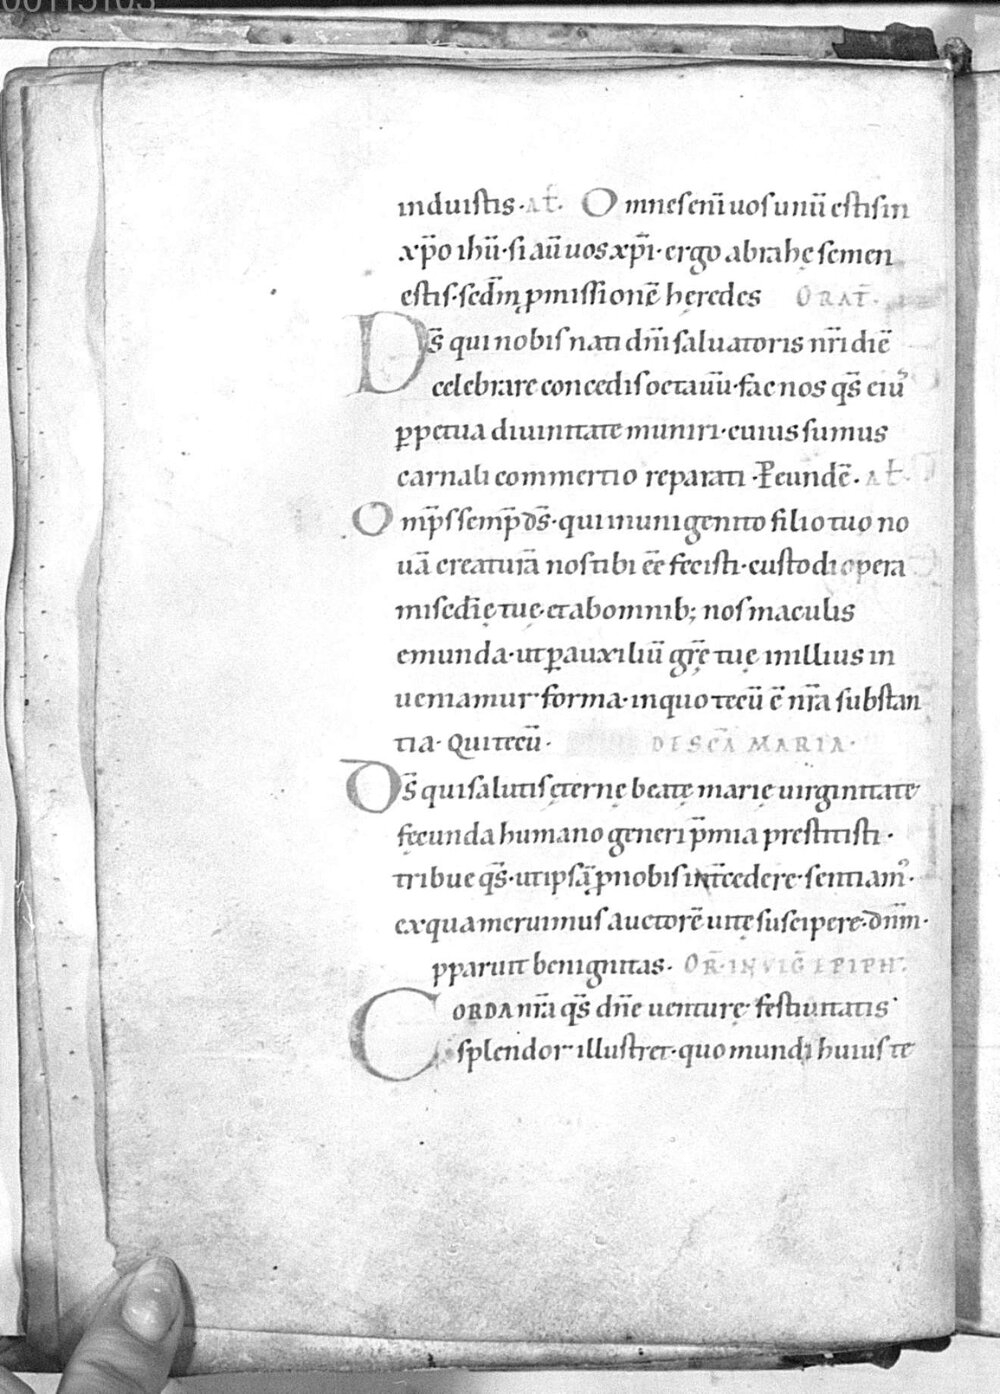 induistis· at̄. Omnes eni̅ uos unu̅ estis in
xp̅o ihu̅· si au̅ uos xp̅i· ergo abrahę semen
estis· sed̅m ꝓmissione̅ heredes ORAT̄·
Ds̅ qui nobis nati dn̅i saluatoris nr̅i die̅
celebrare concedis octauu̅· fac nos qs̅ eiuꝰ
ꝑpetua diuinitate muniri· cuius sumus
carnali commertio reparati· P̅ eunde̅· at̄·
Omp̅s semp̅ ds̅· qui in unigenito filio tuo no
ua̅ creatura̅ nos tibi ee̅ fecisti· custodi opera
misc̅dię tuę· et ab omnib; nos maculis
emunda· ut ꝑ auxiliu̅ gr̅ę tuę in illius in
ueniamur forma· in quo tecu̅ e̅ nr̅a substan
tia· Qui tecu̅· DE SC̅A MARIA·
Ds̅ qui salutis ęternę beatę marię uirginitate
fęcunda humano generi p̅mia prestitisti·
tribue qs̅· ut ipsa̅ ꝓ nobis int̅cedere sentiamꝰ·
ex qua meruimus auctore̅ uitę suscipere· dn̅m·
pparuit benignitas· OR̅· IN VIG̅ EPIPH̅·
CORDA nr̅a qs̅ dn̅e uenturę festiuitatis
splendor illustret· quo mundi huius te